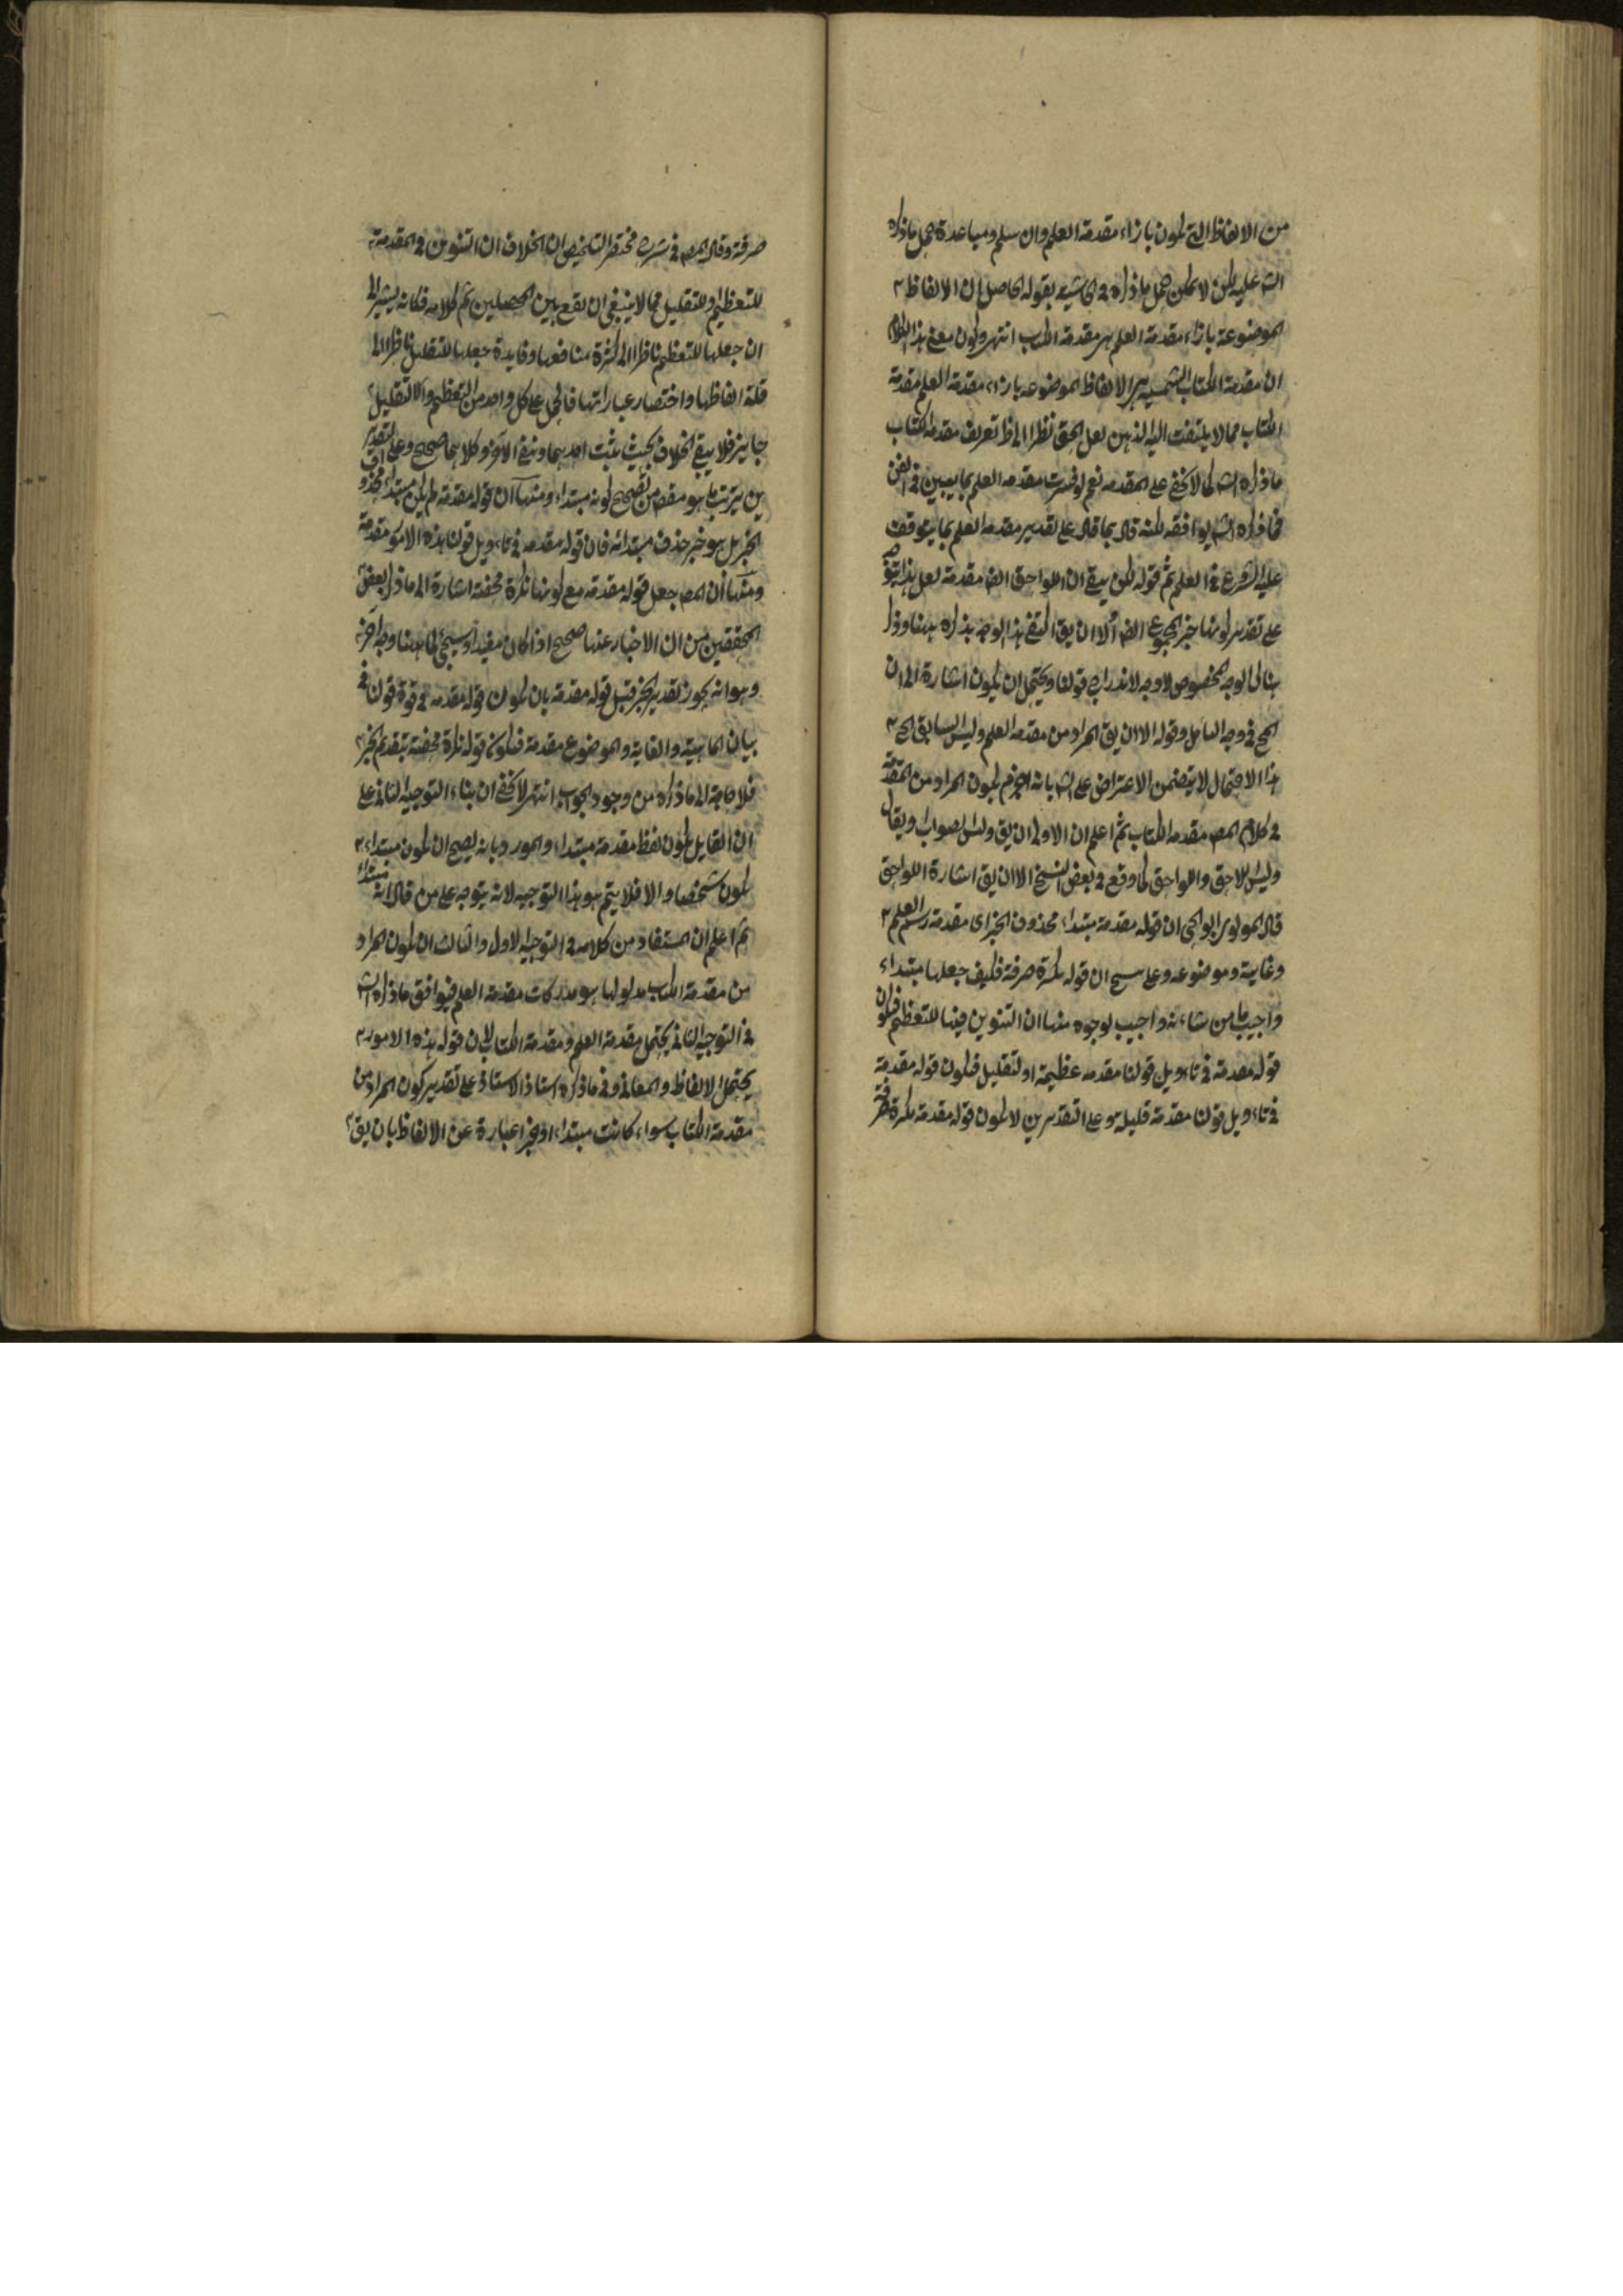 من الالفاظ التى تكون بازاء مقدمة العلم وان سلم ومساعدة حمل ماذكره
الش عليه لكن لا يمكن حمل ماذكره فى الحاشية بقوله الحاصل ان الالفاظ
الموضوعة بازاء مقدمة العلم هى مقدمة الكتاب انتهى وكون معنى هذا الكلام
ان مقدمة الكتاب الشمسية هى الالفاظ الموضوعه بازاء مقدمة العلم مقدمة
الكتاب مما لا يلتفت اليه الذهن لعل الحق نظرا الى ظ تعريف مقدمة الكتاب
ماذكره الش كما لا يخفى على المقدمه نعم لو فسرت مقدمه العلم بما يعين فى الفن
فماذكره الش يوافقه لكنه قال بما قال على تقدير مقدمه العلم بما يتوقف
عليه الشروع فى العلم ثم قوله لكن يبقى ان اللواحق ايض مقدمة لعل هذا
على تقدير كونها خبر المجموع ايض الا ان يق اكتفى بهذا الوجه بذكره ههنا وذكر
هنالك الوجه المخصوص لا وجه لاندراج قولنا ويحتمل ان يكون اشارة الى ان
الحق فى وجه التامل وقوله الا ان يق المراد من مقدمة العلم وليس السابق الخ
هذا الاحتمال لا يتضمن الاعتراض على الش بانه الجزم بكون المراد من المقدمة
فى كلام المص مقدمه الكتاب ثم اعلم ان الاولى ان يق وليس بصواب ويقال
وليس للاحق واللواحق كما وقع فى بعض النسخ الا ان يق اشارة اللواحق
قال المولوى ابو الحى ان قوله مقدمة مبتداء محذوف الخبر اى مقدمة رسم العلم
وغايته وموضوعه وعلى سبح ان قوله نكرة صرفة فكيف جعلها مبتداء
واجيب ما من شانه واجيب بوجوه منها ان التنوين فيها للتعظيم فيكون
قوله مقدمة فى تاءويل قولنا مقدمه عظيمة او لتقليل فيكون قوله مقدمة
فى تاءويل قولنا مقدمة قليلة وعلى التقديرين لا يكون قوله مقدمة نكرة صرفة
صرفة وقال المص فى شرح مختصر التلخيص ان الخلاف ان التنوين فى المقدمة
للتعظيم او للتقليل مما لا ينبغى ان يقع بين المحصلين تم كلامه فكانه يشير الى
ان جعلها للتعظيم ناظرا الى كثرة منافعها وفايدة جعلها للتقليل ناظر الى
قلة الفاظها واختصار عباراتها فالحمل على كل واحد من التعظيم والا لتقليل
جايز فلا يبقى الخلاف بحيث يثبت احدهما وينفى الآخر وكلاهما صحيح وعلى التقدير
ين يترتب ما هو مقصود من تصحيح كونه مبتداء ومنها ان قوله مقدمة لم يكن مبتداء محذوف
الخبر بل هو خبر حذف مبتدائه فان قوله مقدمه فى تاءويل قولنا هذه الامور مقدمة
ومنها ان المص جعل قوله مقدمة مع كونها نكرة محضة اشارة الى ماذكر بعض
المحققين من ان الاخبار عنها صحيح اذا كان مفيدا وسيجئ كما ههنا وجه آخر
وهو انه يجوز تقدير الخبر قبل قوله مقدمة بان يكون قوله مقدمه فى قوة قولنا فى
بيان الماهية والغاية والموضوع مقدمة فيكون قوله نكرة محضة بتقديم الخبر
فلا حاجة الى ماذكره من وجوه الجواب انتهى لا يخفى ان بناء التوجيه الثانى على
ان القايل بكون لفظ مقدمة مبتداء والمورد بانه يصح ان يكون مبتداء
يكون شخصا والا فلا يتم هو هذا التوجيه لانه يتوجه على من قال انه مبتداء
ثم اعلم ان المستفاد من كلامه فى التوجيه الاول والثالث ان يكون المراد
من مقدمة الكتاب مدلولها هو مدركات مقدمة العلم فيوافق ماذكره الش
فى التوجيه الثانى يحتمل مقدمة العلم ومقدمة الكتاب لان قوله هذه الامور
يحتمل الالفاظ والمعانى وفى ماذكره استاذ الاستاذ على تقدير كون المراد من
مقدمة الكتاب سواء كانت مبتداء او خبرا عبارة عن الالفاظ بان يق